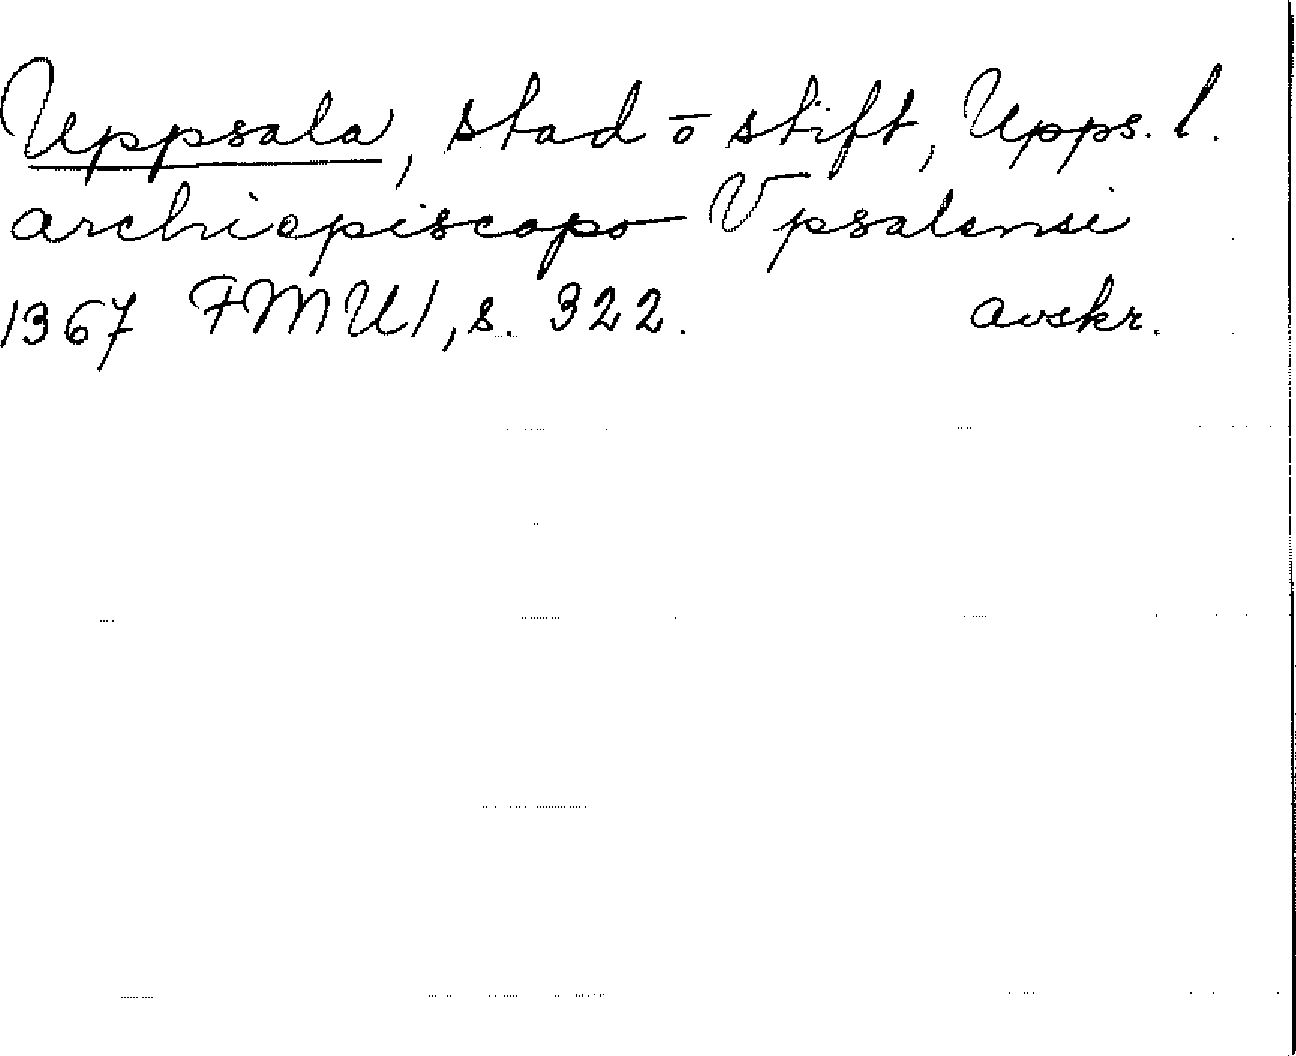 Uppsala, stad o stift, Upps. l.
archiepiscopo Vpsalensi
1367 FMU 1, s. 322. avskr.